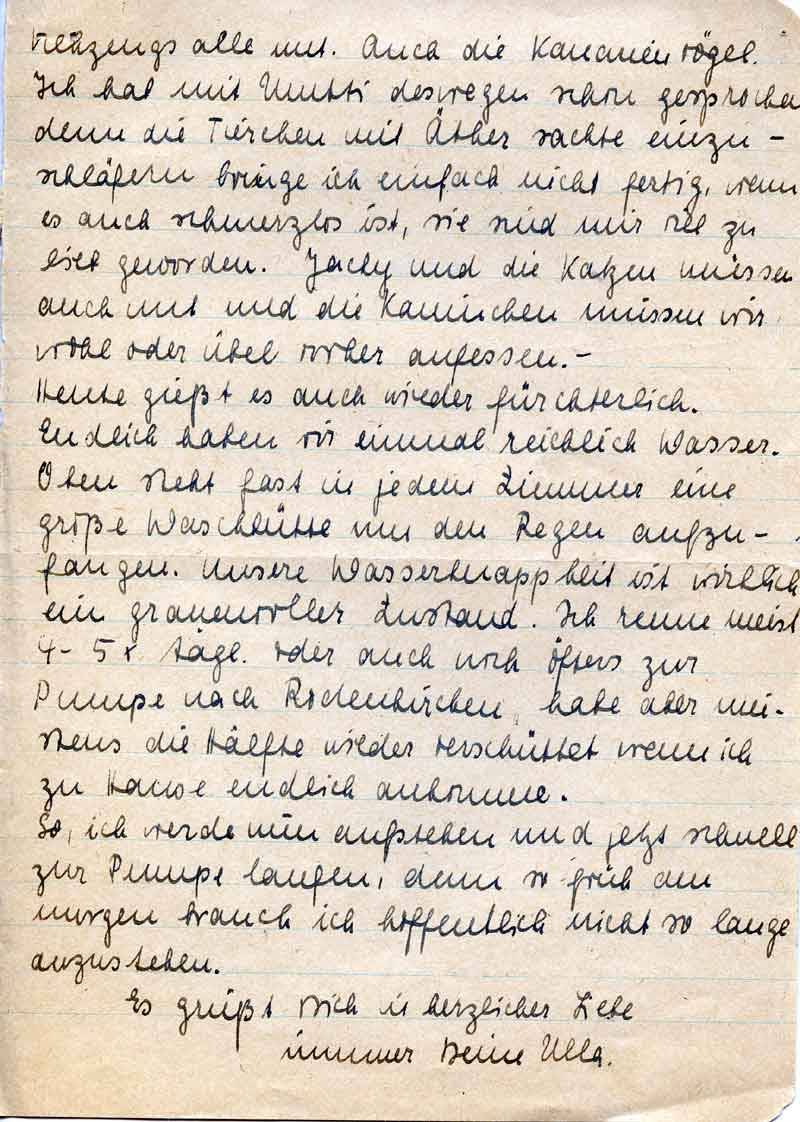 viehzeugs alle mit. Auch die Kanarienvögel.
Ich hab mit Mutti deswegen schon gesprochen
denn die Tierchen mit Äther sachte einzu-
schläfern bringe ich einfach nicht fertig, wenn
es auch schmerzlos ist, sie sind mir viel zu
lieb geworden. Jacky und die Katzen müssen
auch mit und die Kaninchen müssen wir
wohl oder übel vorher aufessen.-
Heute gießt es auch wieder fürchterlich.
Endlich haben wir einmal reichlich Wasser.
Oben steht fast in jedem Zimmer eine
große Waschbütte um den Regen aufzu-
fangen. Unsere Wasserknappheit ist wirklich
ein grauenvoller Zustand. Ich renne meist
4-5x tägl. oder auch noch öfters zur
Pumpe nach Rodenkirchen, habe aber mei-
stens die Hälfte wieder verschüttet wenn ich
zu Hause endlich ankomme.
So, ich werde nun aufstehen und jetzt schnell
zur Pumpe laufen, denn so früh am
morgen brauch ich hoffentlich nicht so lange
anzustehen.
Es grüßt Dich in herzlicher Liebe
immer Deine Ulla.